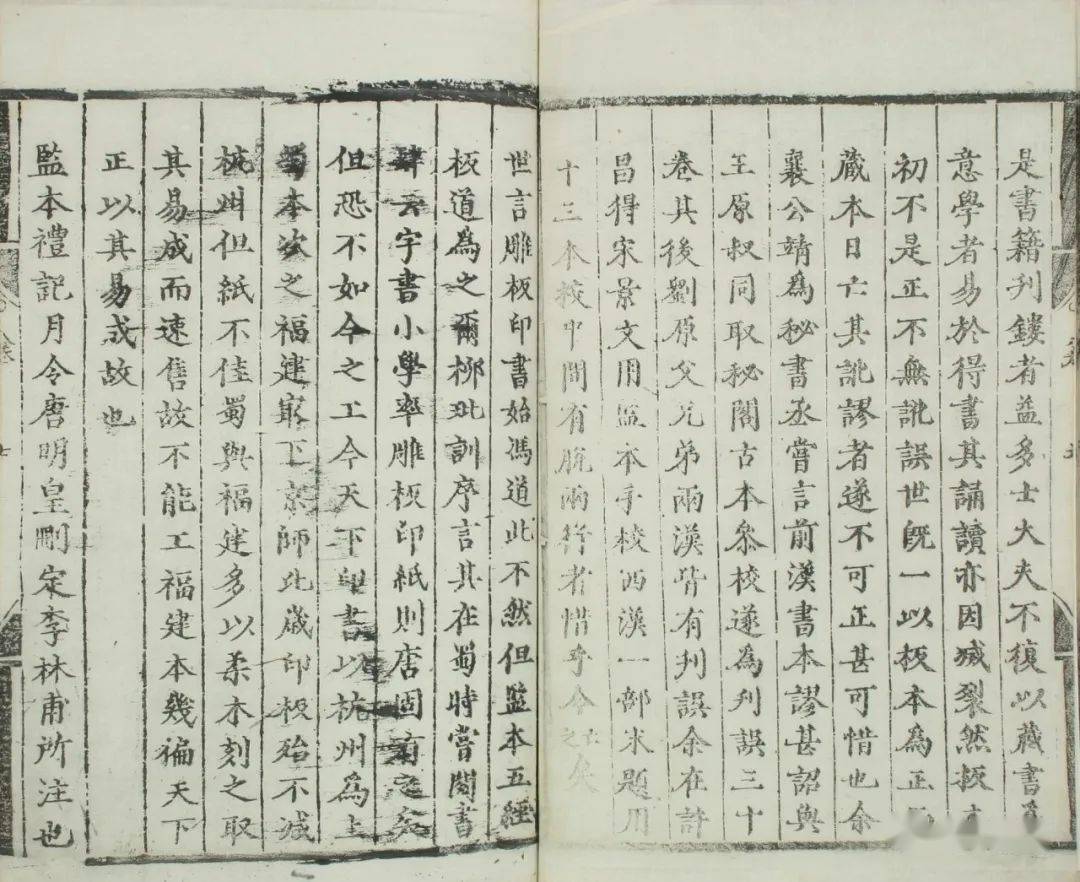 是書籍刊鏤者益多士大夫不復以藏書為
意學者易於得書其誦讀亦因滅裂然板本
初不是正不無訛誤世旣一以板本為正而
藏本日亡其訛謬者遂不可正甚可惜也余
襄公靖為秘書丞嘗言前漢書本謬甚詔與
王原叔同取秘閣古本叅校遂為刋誤三十
卷其後劉原父兄弟兩漢皆有刋誤余在許
昌得宋景文用監本手校西漢一部末題用
十三本校中間有脫兩行者惜乎今亡之矣
世言雕板印書始馮道此不然但監本五經
板道為之爾柳玭訓序言其在蜀時嘗閱書
肆云字書小學率雕板印紙則唐固有之矣
但恐不如今之工今天下印書以杭州為上
蜀本次之福建最下京師比歲印板殆不減
杭州但紙不佳蜀與福建多以柔木刻之取
其易成而速售故不能工福建本幾徧天下
正以其易成故也
監本禮記月令唐明皇刪定李林甫所注也